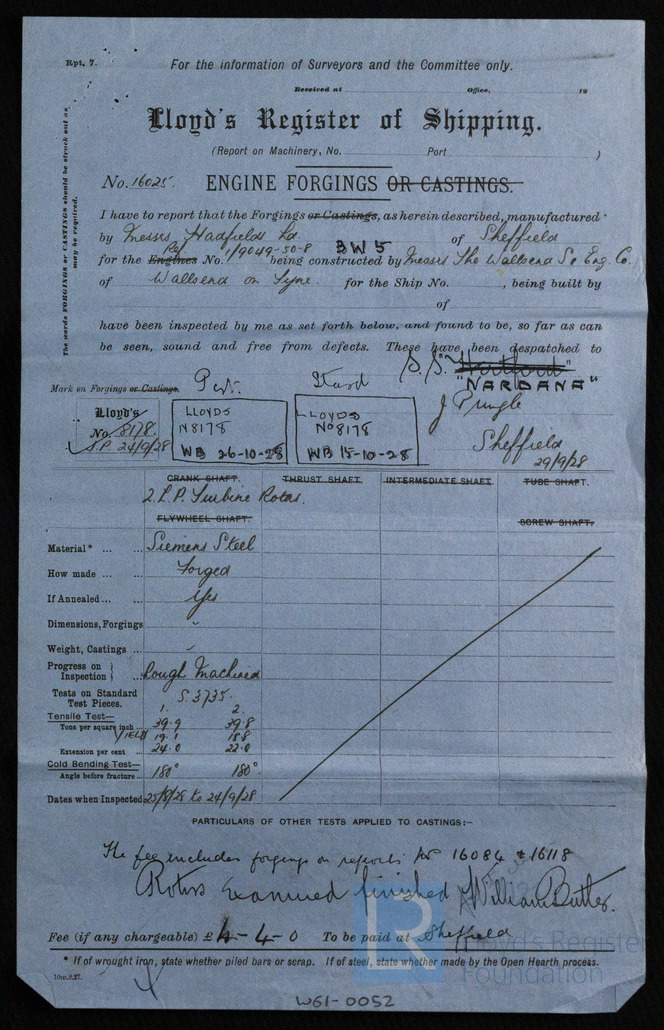 Rpt. 7.
For the information of Surveyors and the Committee only.
Received at Office, 19
Lloyd's Register of Shipping.
(Report on Machinery, No. Port )
The words FORGINGS or CASTINGS should be struck out as may be required.
No. 16025. ENGINE FORGINGS OR CASTINGS.
I have to report that the Forgings or Castings, as herein described, manufactured
by Messrs Hadfields Ld. of Sheffield
BW5
for the Engines No. 1/9049-50-8 being constructed by Messrs The Wallsend So Eng. Co.
of Wallsend on Tyne. for the Ship No. , being built by
of
have been inspected by me as set forth below, and found to be, so far as can
be seen, sound and free from defects. These have been despatched to
S.S. "Hartford"
"NARDANA"
Mark on Forgings or Castings. Port. Starb
J Pringle
Lloyd's No. 8178. J.P. 24/9/28
LLOYDS N8178 WB 26-10-28
LLOYDS No8178 WB 15-10-28
Sheffield
29/9/28
CRANK SHAFT. THRUST SHAFT INTERMEDIATE SHAFT TUBE SHAFT.
2 L.P. Turbine Rotors.
FLYWHEEL SHAFT. SCREW SHAFT.
Material* ... ... Siemens Steel
How made ... ... Forged
If Annealed ... ... Yes
Dimensions, Forgings
Weight, Castings ...
Progress on Inspection ... Rough Machined
Tests on Standard Test Pieces. S3735.
1. 2.
Tensile Test—
Tons per square inch ... 39.9 39.8
YIELD 19.1 18.8
Extension per cent ... 24.0 22.0
Cold Bending Test—
Angle before fracture... 180° 180°
Dates when Inspected 25/8/28 to 24/9/28
PARTICULARS OF OTHER TESTS APPLIED TO CASTINGS:—
The fee includes forgings on reports No 16084 & 16118
Rotors Examined finished William Butler.
Fee (if any chargeable) £ 4-4-0 To be paid at Sheffield
* If of wrought iron, state whether piled bars or scrap. If of steel, state whether made by the Open Hearth process.
10m.9.27.
Lloyd's Register
Foundation
W61-0052